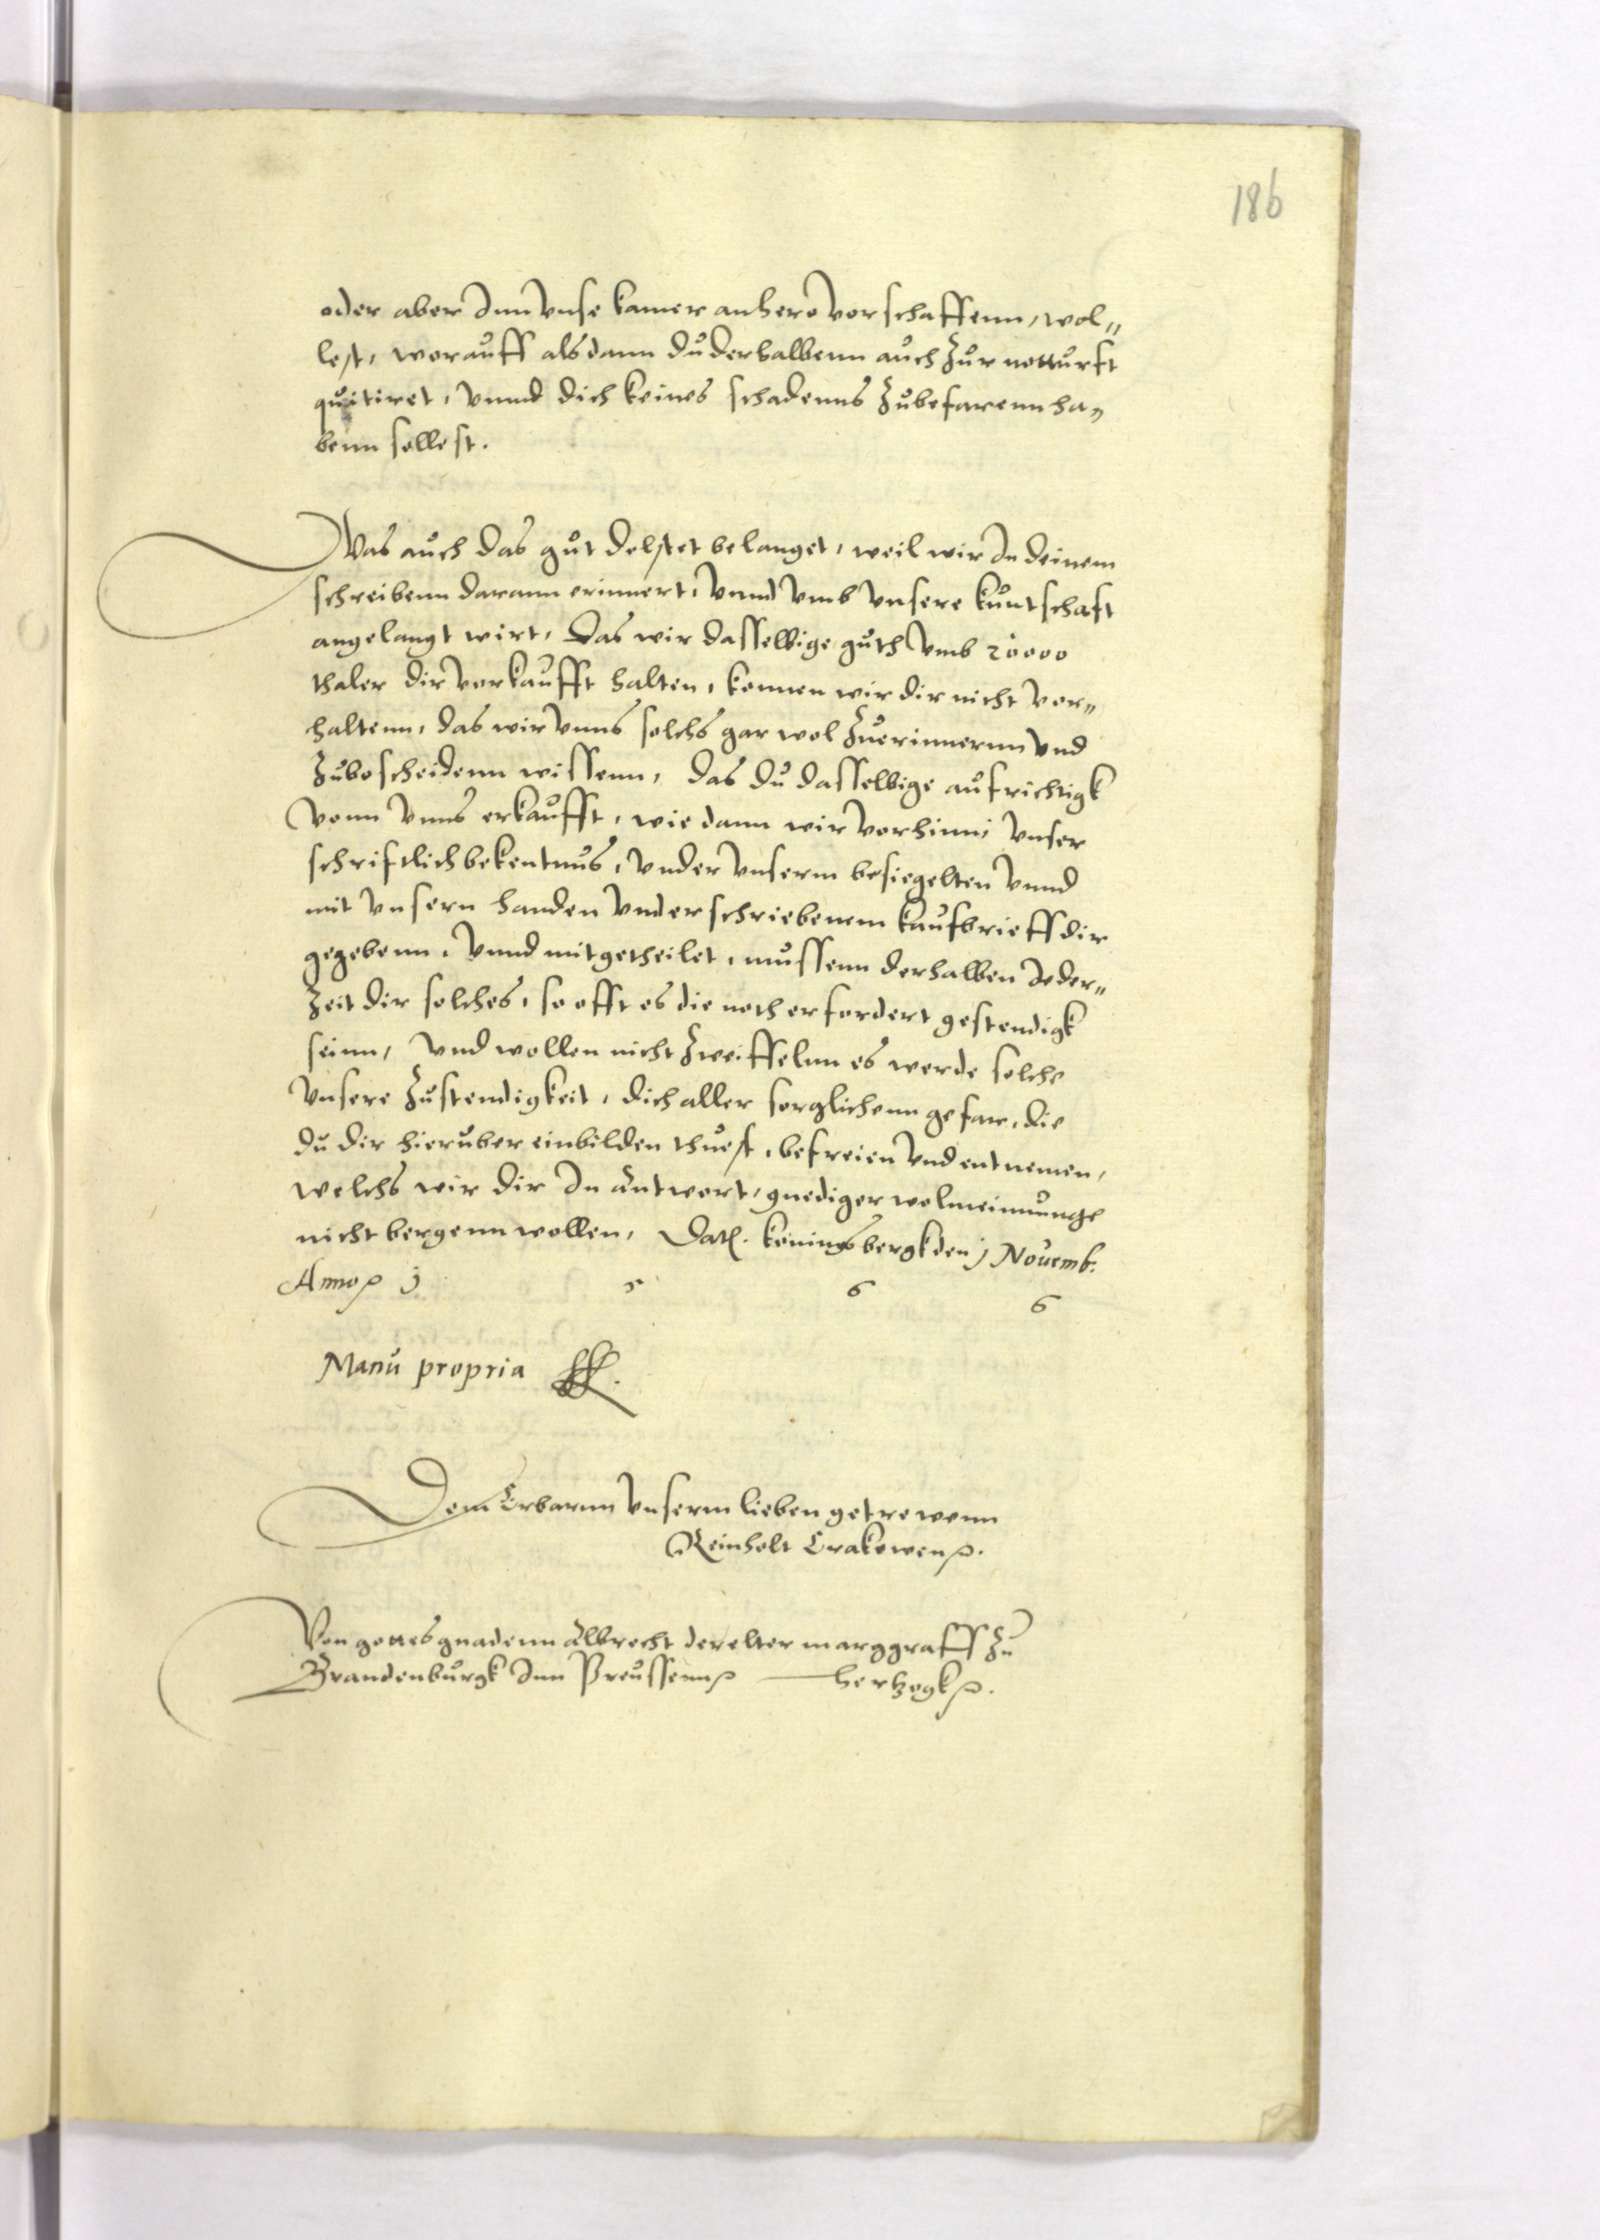 186
oder aber Inn Vnse kamer anhero vorschaffenn, wol„
lest, worauff alsdann du derhalbenn auch zur notturft
quitiret, vnnd dich keines schadenns zubefarenn ha„
benn sollest.
Was auch das gut dolstet belanget, weil wir In deinem
schreibenn darann erinnert, vnnd vmb vnsere kuntschaft
angelangt wirt, Das wir dasselbige guth vmb 20000
thaler dir vorkaufft halten, konnen wir dir nicht vor„
haltenn, das wir vnns solchs gar wol zuerinnernn vnd
zubescheidenn wissenn, das du dasselbige aufrichtigk
vonn vnns erkaufft, wie dann wir vorhinn vnser
schriftlich bekentnus, vnder vnserm besiegelten vnnd
mit vnsern handen vnderschriebenem kaufbrieff dir
gegebenn, vnnd mitgetheilet, mussenn derhalben Jeder„
zeit dir solches, so offt es die noth erfordert gestendigk
seinn, vnd wollen nicht zweiffelnn es werde solche
vnsere zustendigkeit, dich aller sorglichenn gefar, die
du dir hieruber einbilden thuest, befreien vnd entnemen,
welchs wir dir In antwort, gnediger wolmeinunge
nicht bergenn wollen, Dat. koningsbergk den j Nouemb.
Anno j 5 6 6
Manu propria
Dem Erbarnn vnserm lieben getrewenn
Reinholt Crakowen
Von gottes gnadenn Albrecht der elter marggraff zu
Brandenburgk Inn Preussenn hertzogk